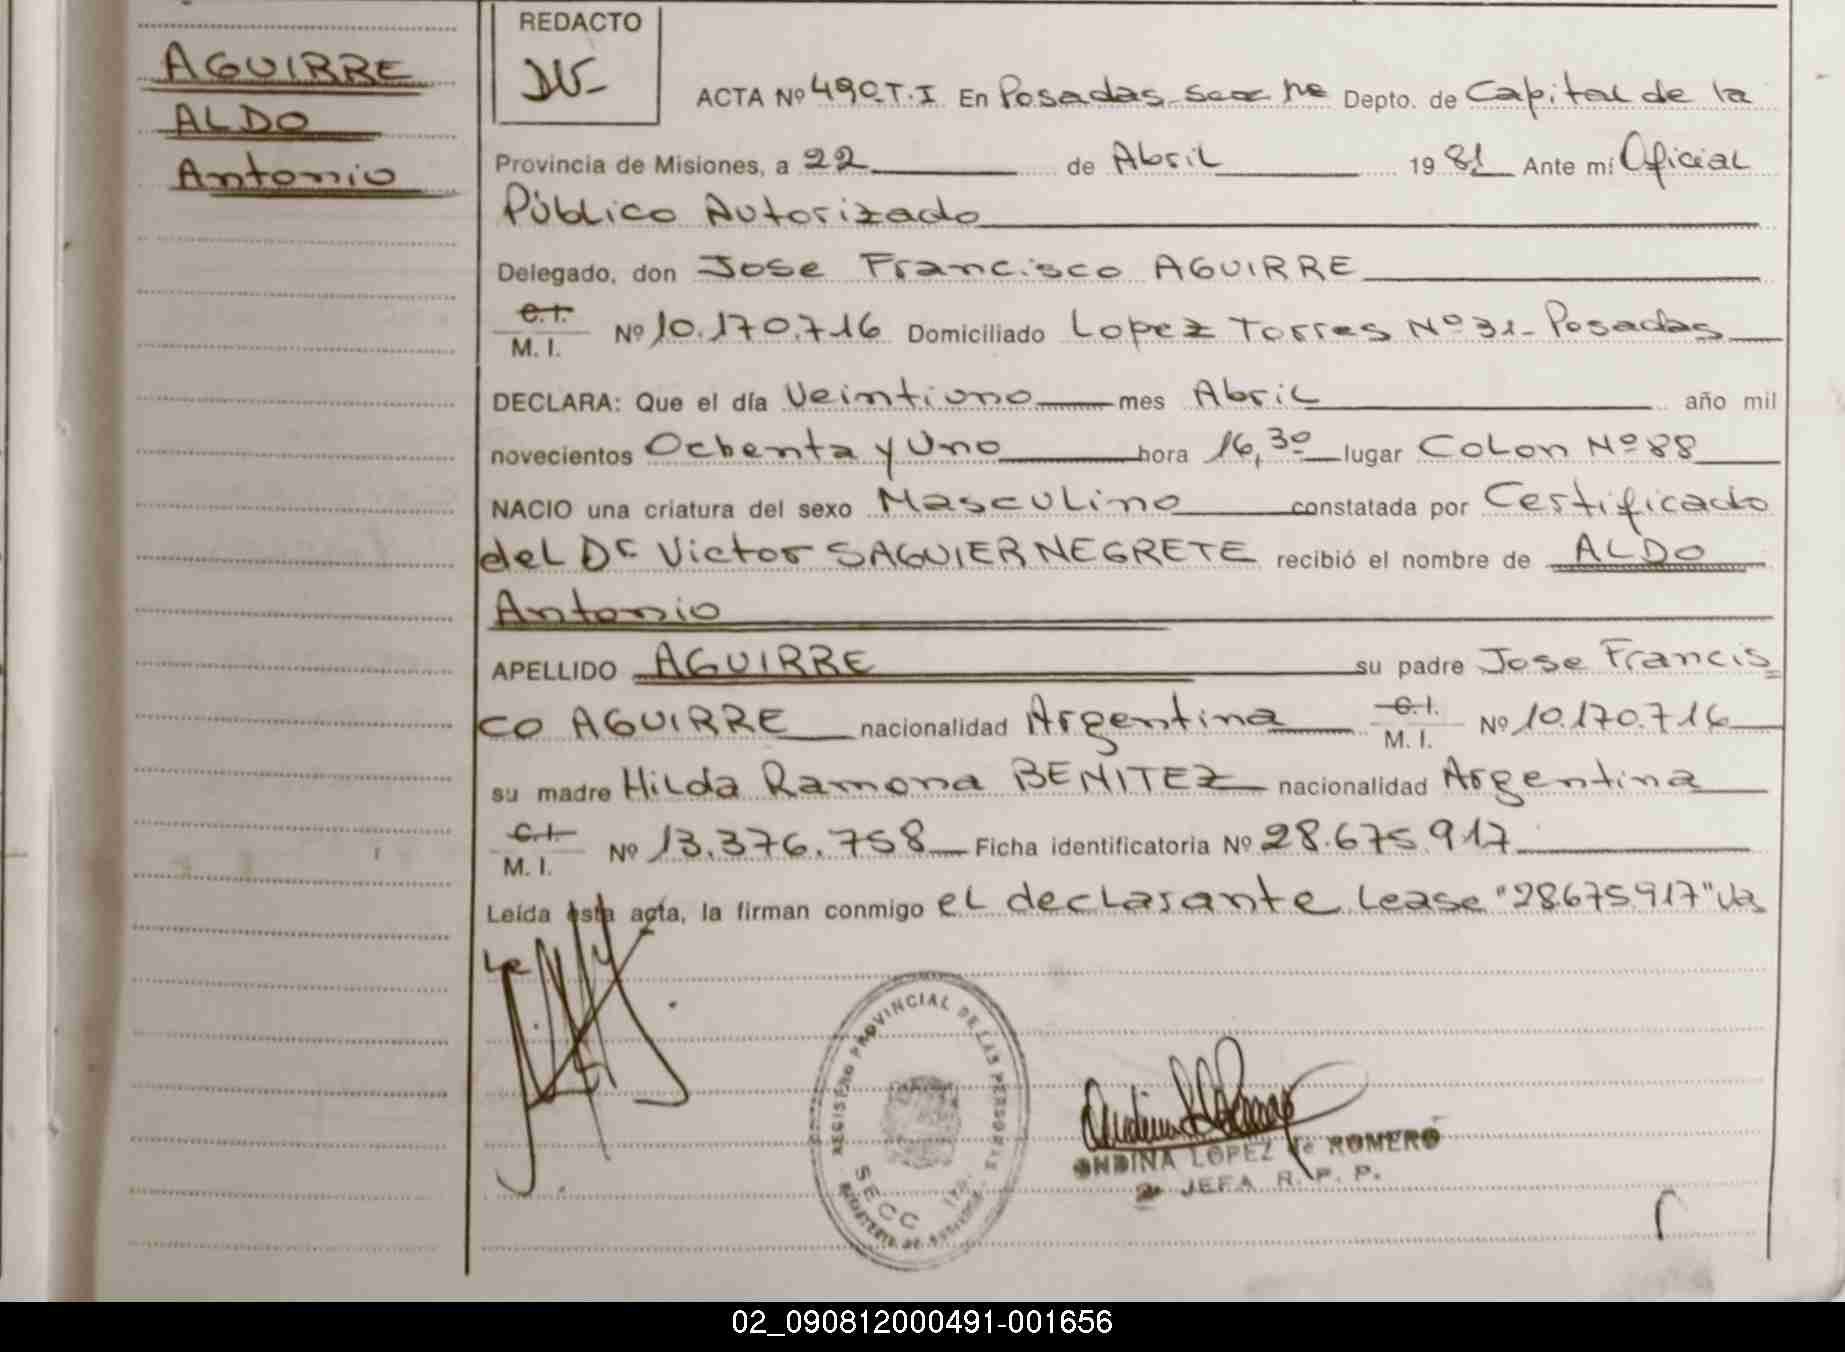 AGUIRRE
ALDO
Antonio
REDACTO
ACTA Nº 490.T.I En Posadas Depto. de Capital de la
Provincia de Misiones, a 22 de Abril 1981 Ante mí Oficial
Público Autorizado
Delegado, don Jose Francisco AGUIRRE
C.I.
M. I. Nº 10.170.716 Domiciliado Lopez Torres Nº 31- Posadas
DECLARA: Que el día Veintiuno mes Abril año mil
novecientos Ochenta y Uno hora 16,30 lugar Colon Nº 88
NACIO una criatura del sexo Masculino constatada por Certificado
del Dr Victor SAGUIER NEGRETE recibió el nombre de ALDO
Antonio
APELLIDO AGUIRRE su padre Jose Francis
co AGUIRRE nacionalidad Argentina C.I.
M. I. Nº 10.170.716
su madre Hilda Ramona BENITEZ nacionalidad Argentina
C.I.
M. I. Nº 13.376.758 Ficha identificatoria Nº 28.675.917
Leída esta acta, la firman conmigo el declarante Lease "28.675.917" Va
le
REGISTRO PROVINCIAL DE LAS PERSONAS
SECC 1ra.
ONDINA LOPEZ de ROMERO
JEFA R. P. P.
02_090812000491-001656